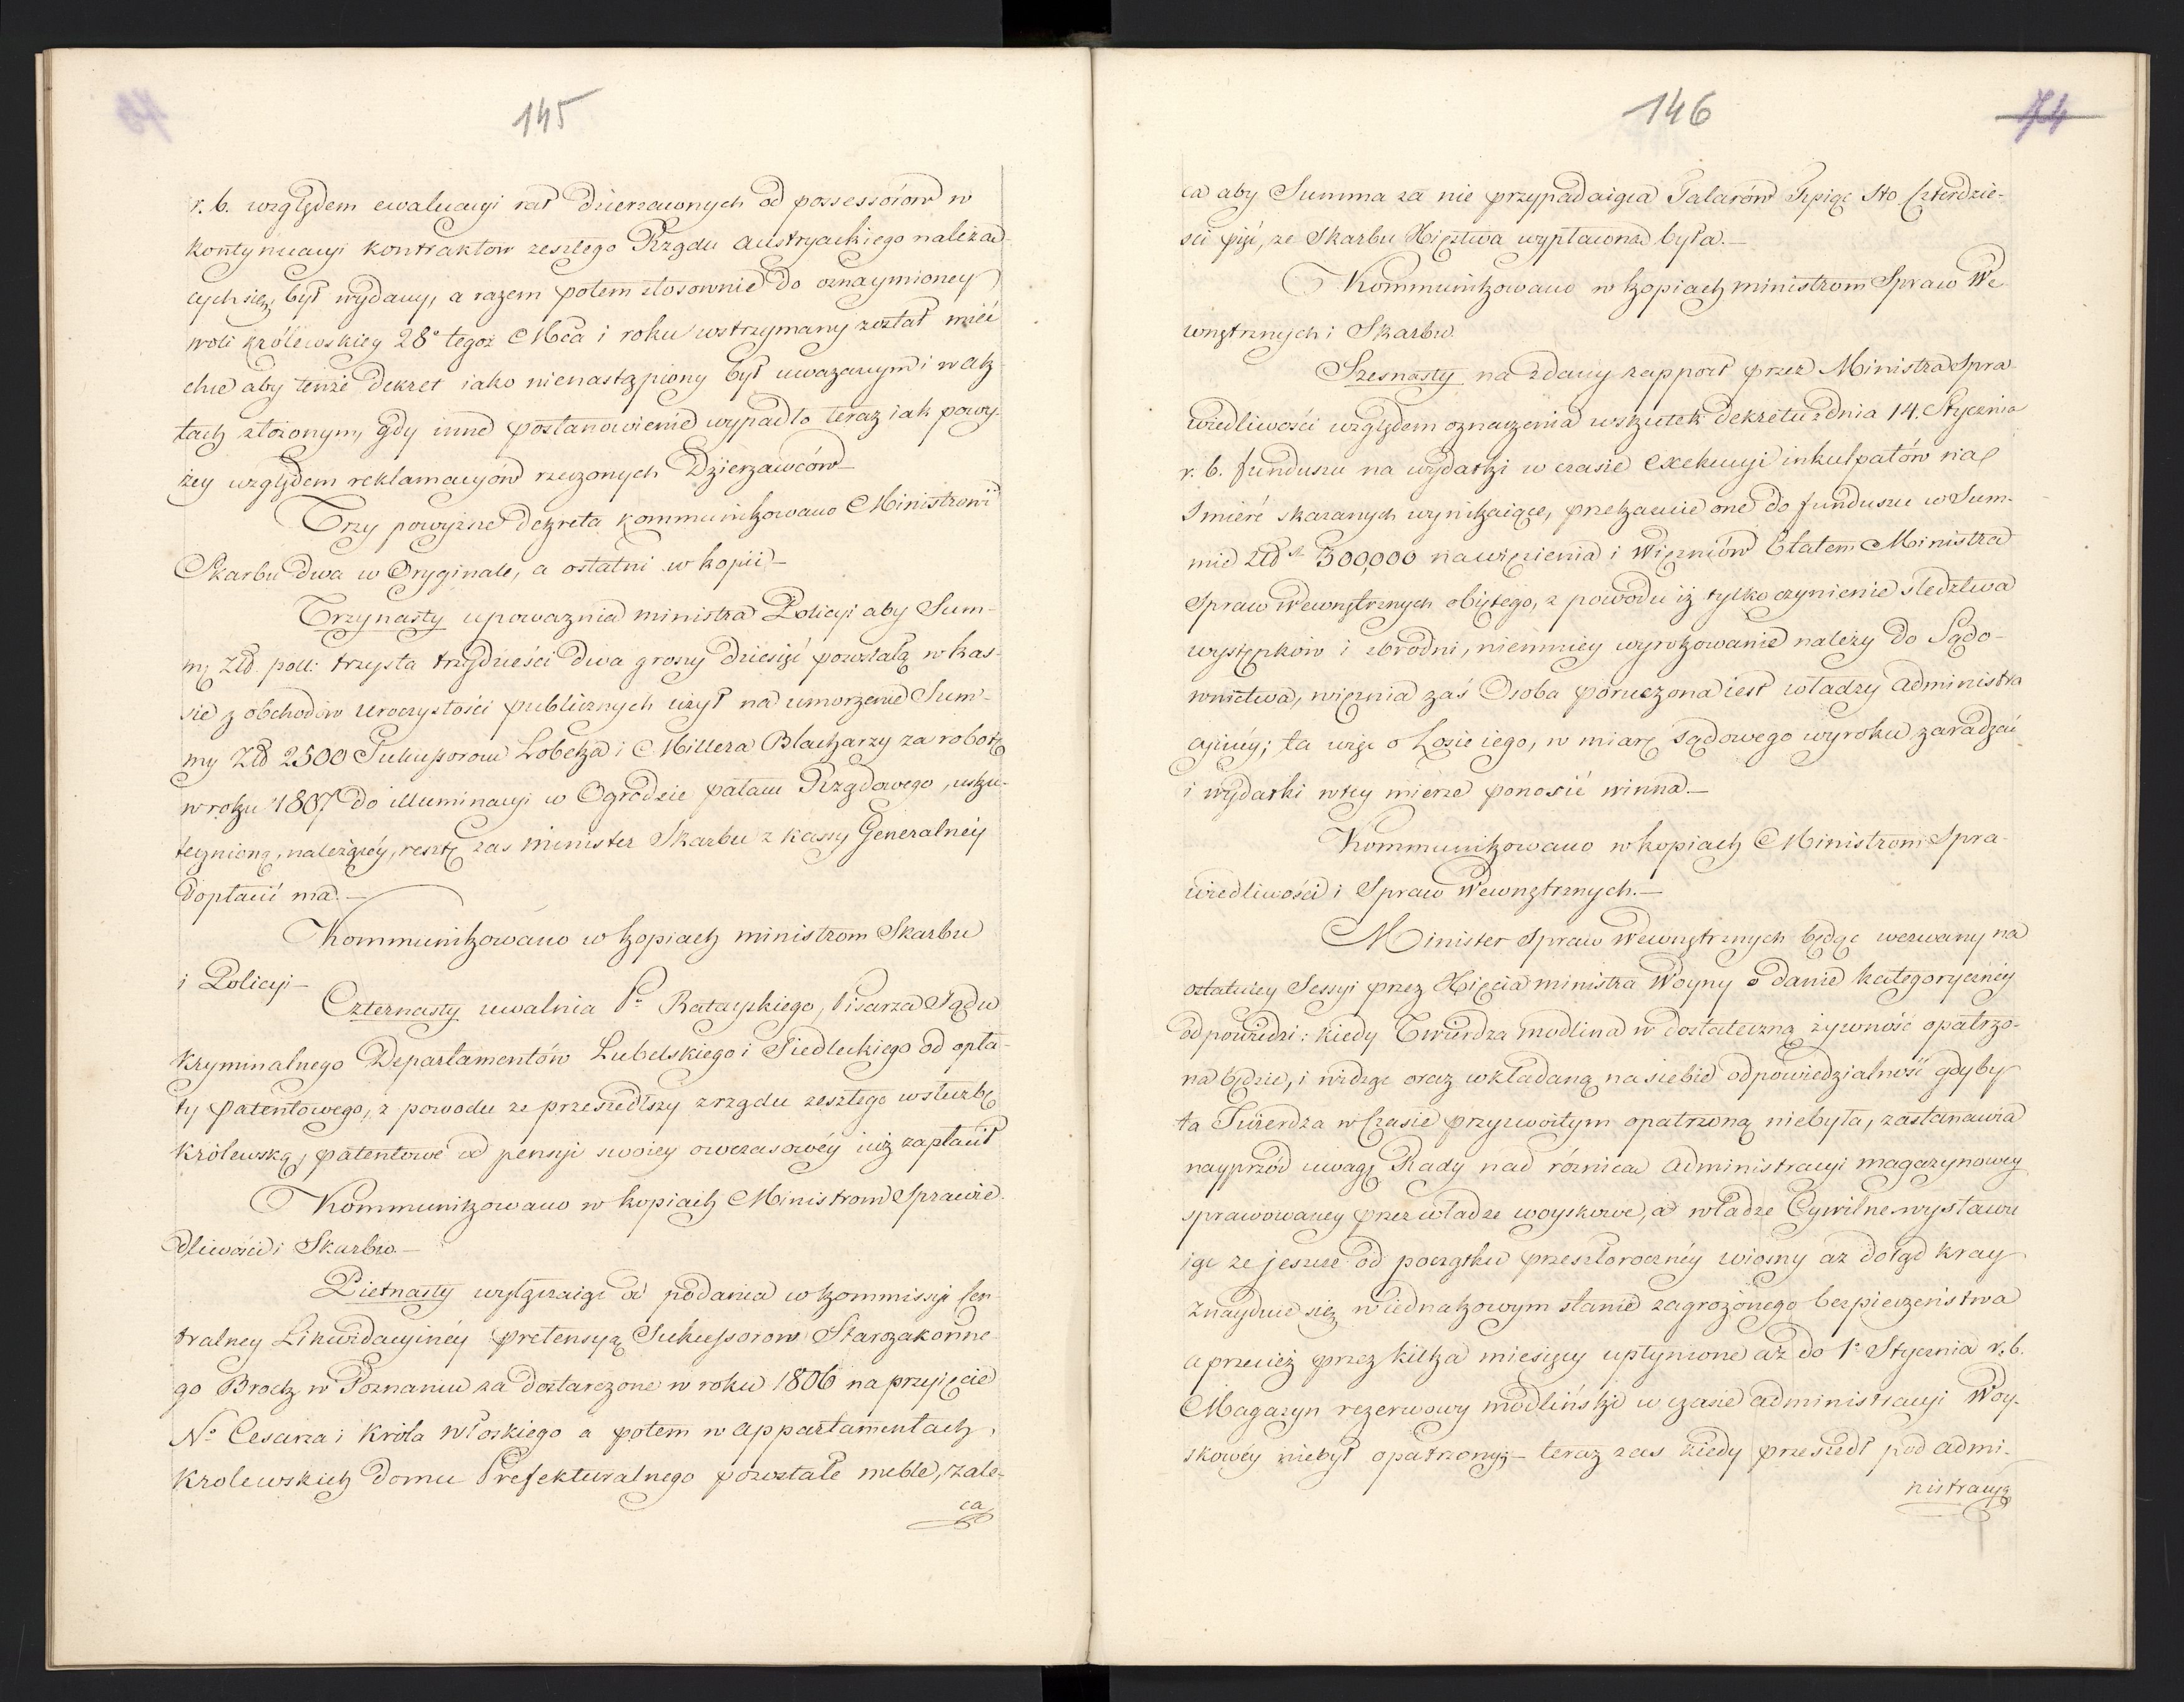 145
r. b. względem ewaluacyi rat dzierzawnych od possessorów w
kontynuacyi kontraktow zeszłego Rządu austryackiego należą-
cych się, był wydany, a razem potem stosownie do oznaymioney
woli królewskiey 28° tegoż Mca i roku wstrzymany został mieć
chce aby tenże dekret iako nienastąpiony był uwazanym i w ak-
tach złożonym, gdy inne postanowienie wypadło teraz iak powy-
żey względem reklamacyów rzeczonych Dzierzawców
Trzy powyższe dekreta kommunikowano Ministrowi
Skarbu dwa w Oryginale, a ostatni w kopii
Trzynasty upowaznia ministra Policyi aby Sum-
mę Złł. poll: trzysta trzydzieści dwa groszy dziesięć pozostałą w kas-
sie z obchodów uroczystości publicznych użył na umorzenie Sum-
my Złł 2500 Sukcessorow Lobecka i Millera Blacharzy za robotę
w roku 1807 do illuminacyi w Ogrodzie pałacu Rządowego, usku-
tecznioną, należącéy, resztę zas minister Skarbu z kassy Generalnéy
dopłacić ma.—
Kommunikowano w kopiach ministrom Skarbu
i Policyi—
Czternasty uwalnia Pa Ratayskiego, Pisarza Sądu
Kryminalnego Departamentów Lubelskiego i Siedleckiego od opła-
ty patentowego, z powodu ze przeszedłszy z rządu zeszłego w służbę
Królewską, patentowe od pensyi swoiey owczasowéy iuż zapłacił
Kommunikowano w kopiach Ministrom Sprawie-
dliwości i Skarbu.—
Pietnasty wyłączaiąc od podania w kommissyi Cen-
tralney Likwidacyinéy pretensyą Sukcessorow Starozakonne-
go Brock w Poznaniu za dostarczone w roku 1806 na przyięcie
No Cesarza i Króla Włoskiego a potem w appartamentach
Krolewskich domu Prefekturalnego pozostałe meble, zale-
ca
146
74
ca aby Summa za nie przypadaiąca Talarów Tysiąc Sto Czterdzie-
ści pięć, ze Skarbu Xięztwa wypłacona była.—
Kommunikowano w kopiach ministrom Spraw We-
wnętrznych i Skarbu.
Szesnasty na zdany rapport przez Ministra Spra-
wiedliwości względem oznaczenia wskutek dekretu z dnia 14. Stycznia
r. b. funduszu na wydatki w czasie exekucyi inkulpatów na
Smierć skazanych wynikaiące, przekazuie one do funduszu w Sum-
mie Złł 300,000 na więzienia i Więzniów Etatem Ministra
Spraw Wewnętrznych obiętego, z powodu iż tylko czynienie sledztwa
występków i zbrodni, niemniey wyrokowanie należy do Sądo-
wnictwa, więznia zaś Osoba poruczona iest władzy administra
cyinéy; ta więc o Losie iego, w miarę sądowego wyroku zaradzać
i wydatki w tey mierze ponosić winna.—
Kommunikowano w kopiach Ministrom Spra-
wiedliwości i Spraw Wewnętrznych.—
Minister Spraw Wewnętrznych będąc wezwany na
ostatniey Sessyi przez Xięcia ministra Woyny o danie kategoryczniey
odpowiedzi: kiedy Twierdza modlina w dostateczną żywność opatrzo-
na będzie, i widząc oraz wkładaną na siebie odpowiedzialność gdyby
ta Twierdza w Czasie przyzwoitym opatrzoną niebyła, zastanawia
nayprzód uwagę Rady nad róznicą administracyi magazynowey
sprawowaney przez władze woyskowe, a władze Cywilne wystawu
iąc ze jeszcze od początku przeszłorocznéy wiosny aż dotąd kray
znayduie się w iednakowym stanie zagrożonego bezpieczeństwa
a przecież przez kilka miesięcy upłynione aż do 1° Stycznia r. b.
Magazyn rezerwowy modliński w czasie administracyi Woy-
skowéy niebył opatrzony;— teraz zas kiedy przeszedł pod admi-
nistracyą